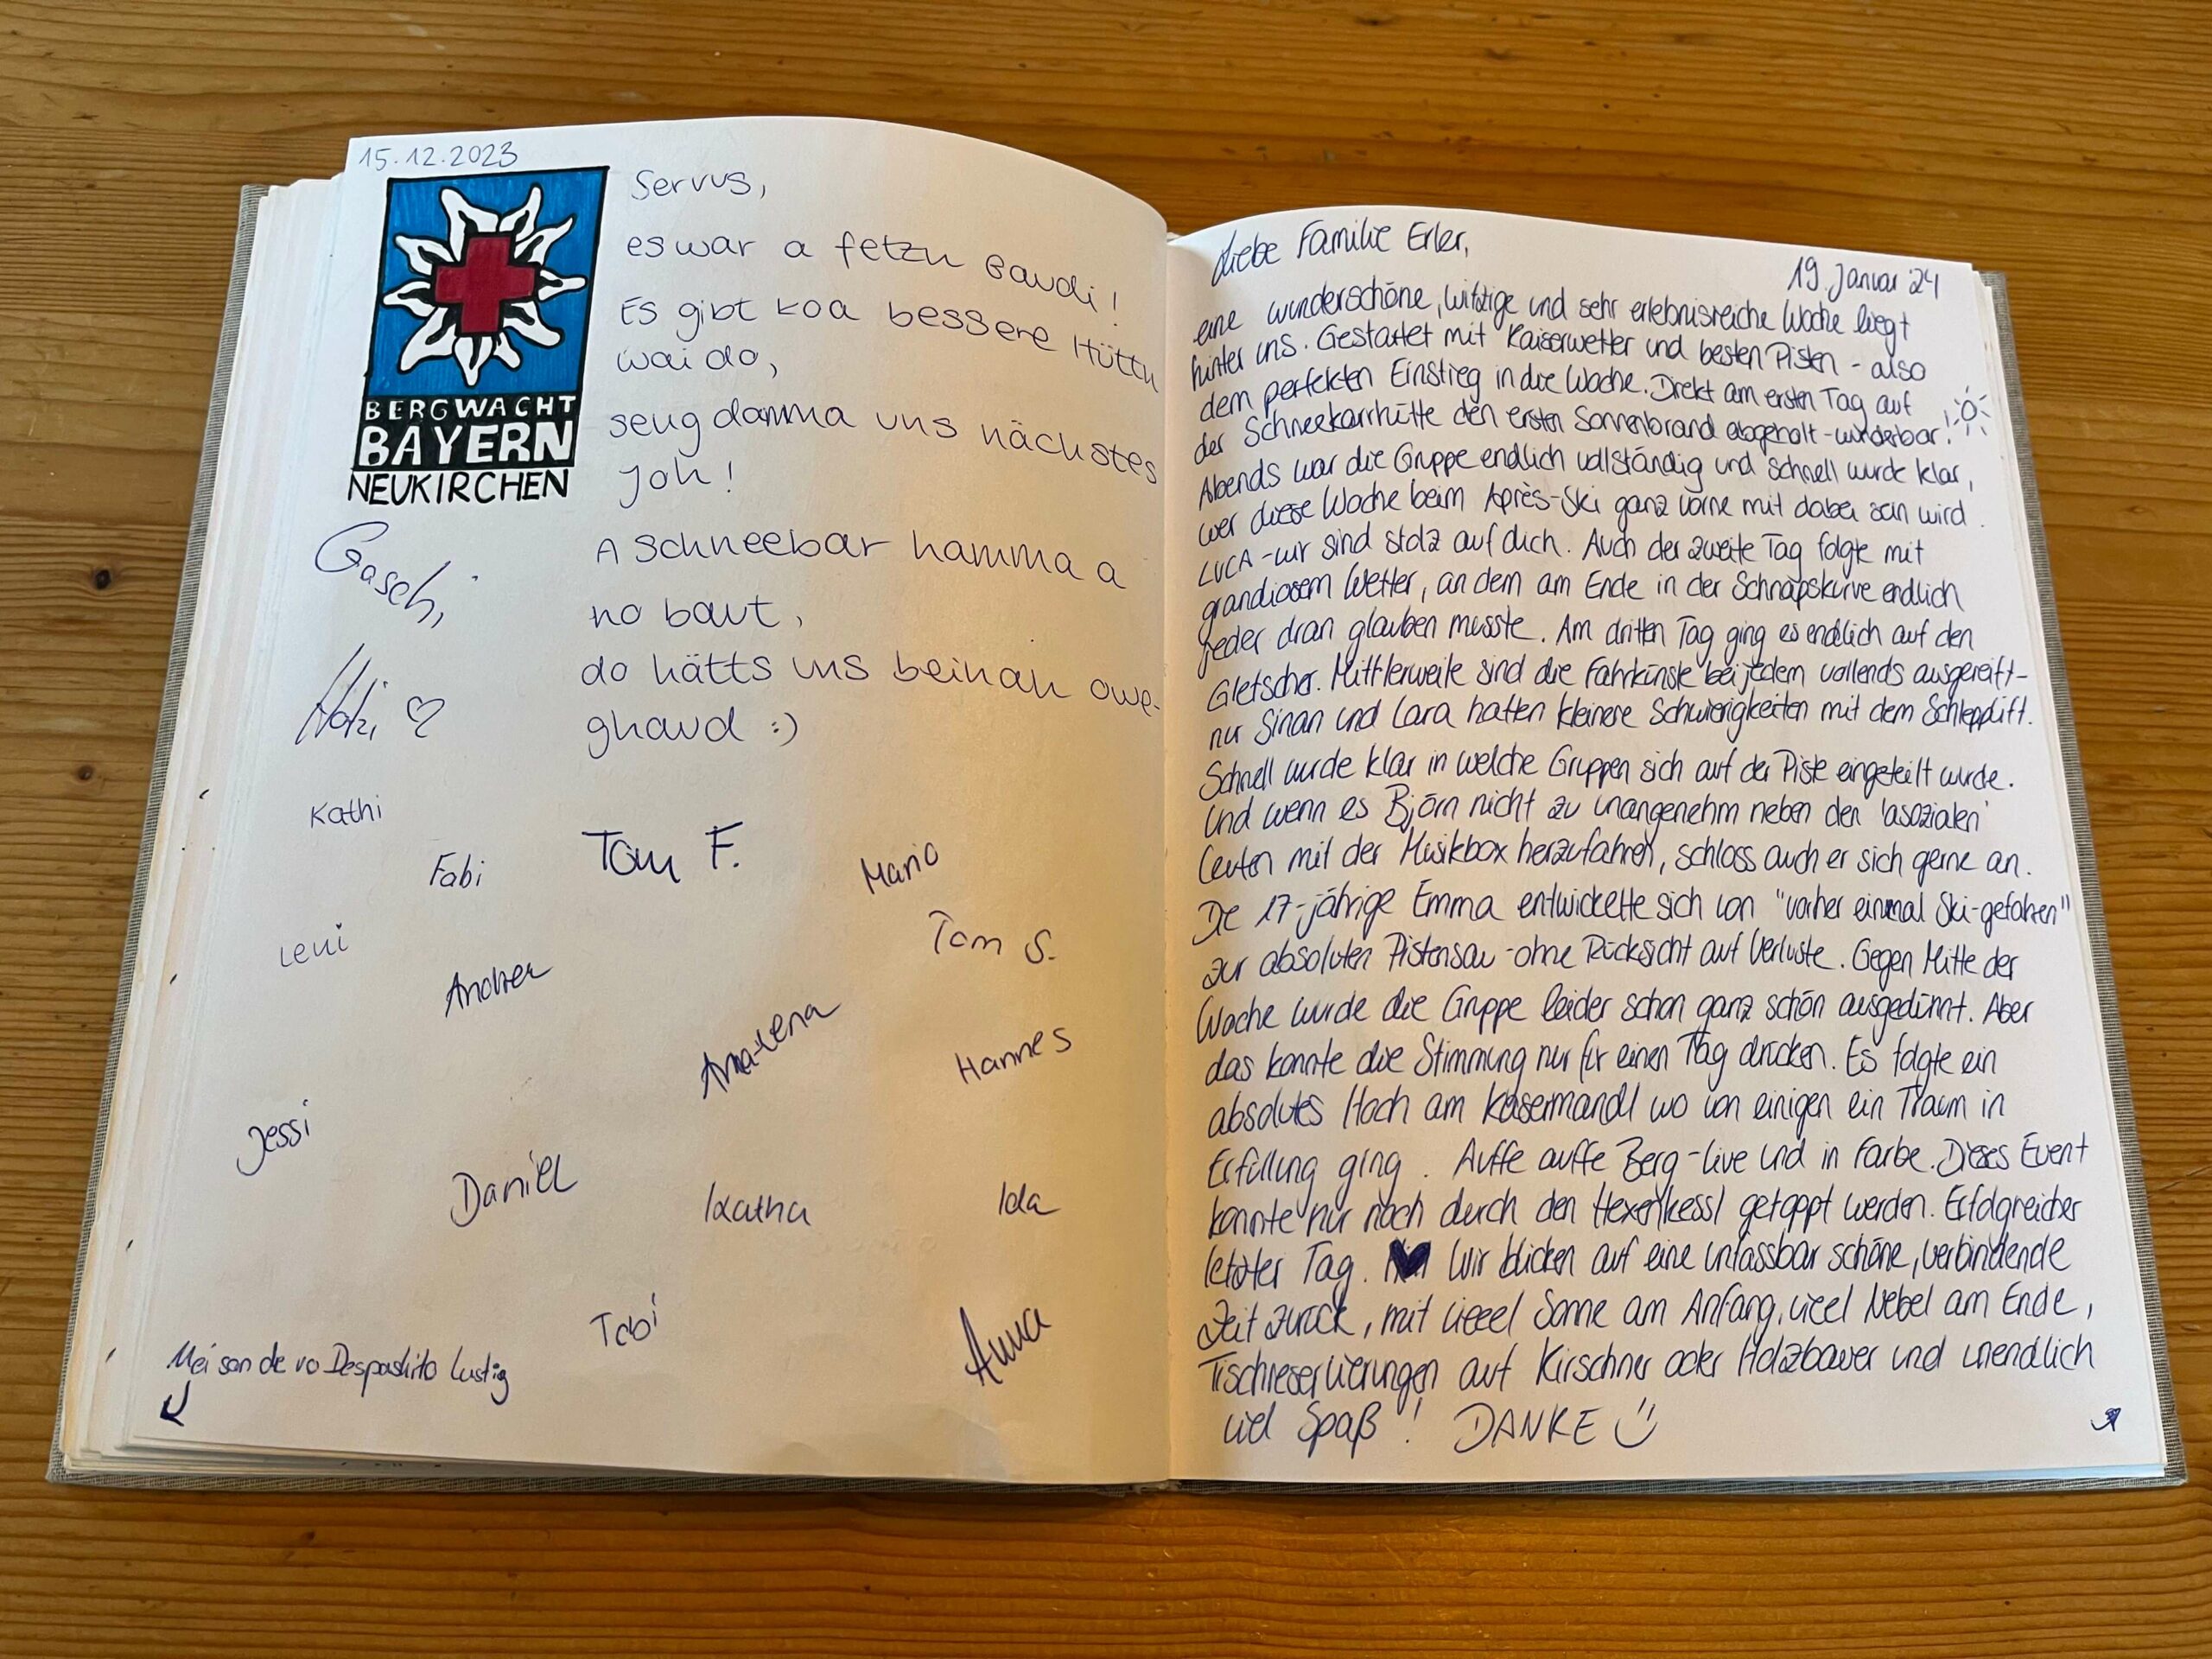 15.12.2023
BERGWACHT
BAYERN
NEUKIRCHEN
Servus,
es war a fetzn Gaudi!
Es gibt koa bessere Hüttn
wai do,
seng damma uns nächstes
Joh!
A schneebar hamma a
no baut,
do hätts uns beinah owe-
ghaud :)
Gaschi,
Kathi
Fabi
Tom F.
Mario
Leni
Andrea
Tom S.
Anna-Lena
Hannes
Jessi
Daniel
Katha
Ida
Tobi
Anna
Mei san de vo Despashito lustig
Liebe Familie Erler,
19. Januar '24
eine wunderschöne, witzige und sehr erlebnisreiche Woche liegt
hinter uns. Gestartet mit Kaiserwetter und besten Pisten - also
dem perfekten Einstieg in die Woche. Direkt am ersten Tag auf
der Schneekarrhütte den ersten Sonnenbrand abgeholt - wunderbar!
Abends war die Gruppe endlich vollständig und schnell wurde klar,
wer diese Woche beim Après-Ski ganz vorne mit dabei sein wird.
LUCA - wir sind stolz auf dich. Auch der zweite Tag folgte mit
grandiosem Wetter, an dem am Ende in der Schnapskurve endlich
jeder dran glauben musste. Am dritten Tag ging es endlich auf den
Gletscher. Mittlerweile sind die Fahrkünste bei jedem vollends ausgereift -
nur Sinan und Lara hatten kleinere Schwierigkeiten mit dem Schlepplift.
Schnell wurde klar in welche Gruppen sich auf der Piste eingeteilt wurde.
Und wenn es Björn nicht zu unangenehm neben den 'asozialen'
Leuten mit der Musikbox herzufahren, schloss auch er sich gerne an.
Die 17-jährige Emma entwickelte sich von "vorher einmal Ski-gefahren"
zur absoluten Pistensau - ohne Rücksicht auf Verluste. Gegen Mitte der
Woche wurde die Gruppe leider schon ganz schön ausgedünnt. Aber
das konnte die Stimmung nur für einen Tag drücken. Es folgte ein
absolutes Hoch am Kasermandl wo von einigen ein Traum in
Erfüllung ging. Auffe auffe Berg - live und in Farbe. Dieses Event
konnte nur noch durch den Hexenkessl getoppt werden. Erfolgreicher
letzter Tag. Wir blicken auf eine unfassbar schöne, verbindende
Zeit zurück, mit vieeel Sonne am Anfang, vieel Nebel am Ende,
Tischreservierungen auf Kirschner oder Holzbauer und unendlich
viel Spaß! DANKE